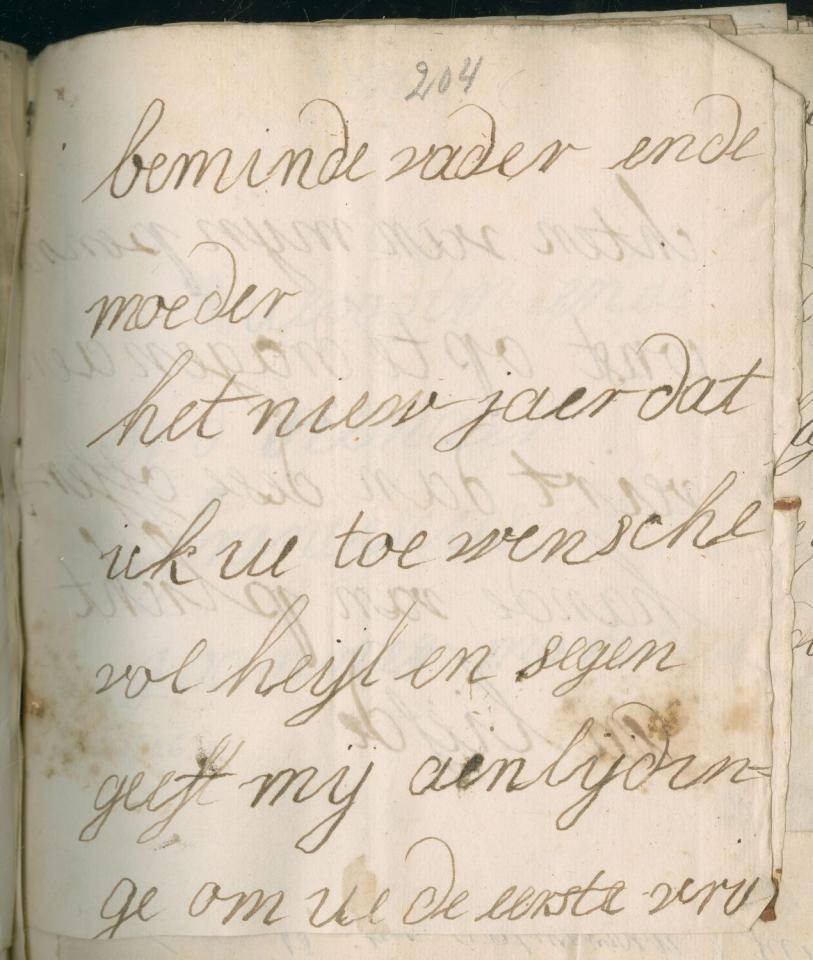 204
beminde vader ende
moeder
het niew jaer dat
ick ue toe wensche
vol heijl en segen
geeft mij aenlijdin-
ge om ue de eerste vru